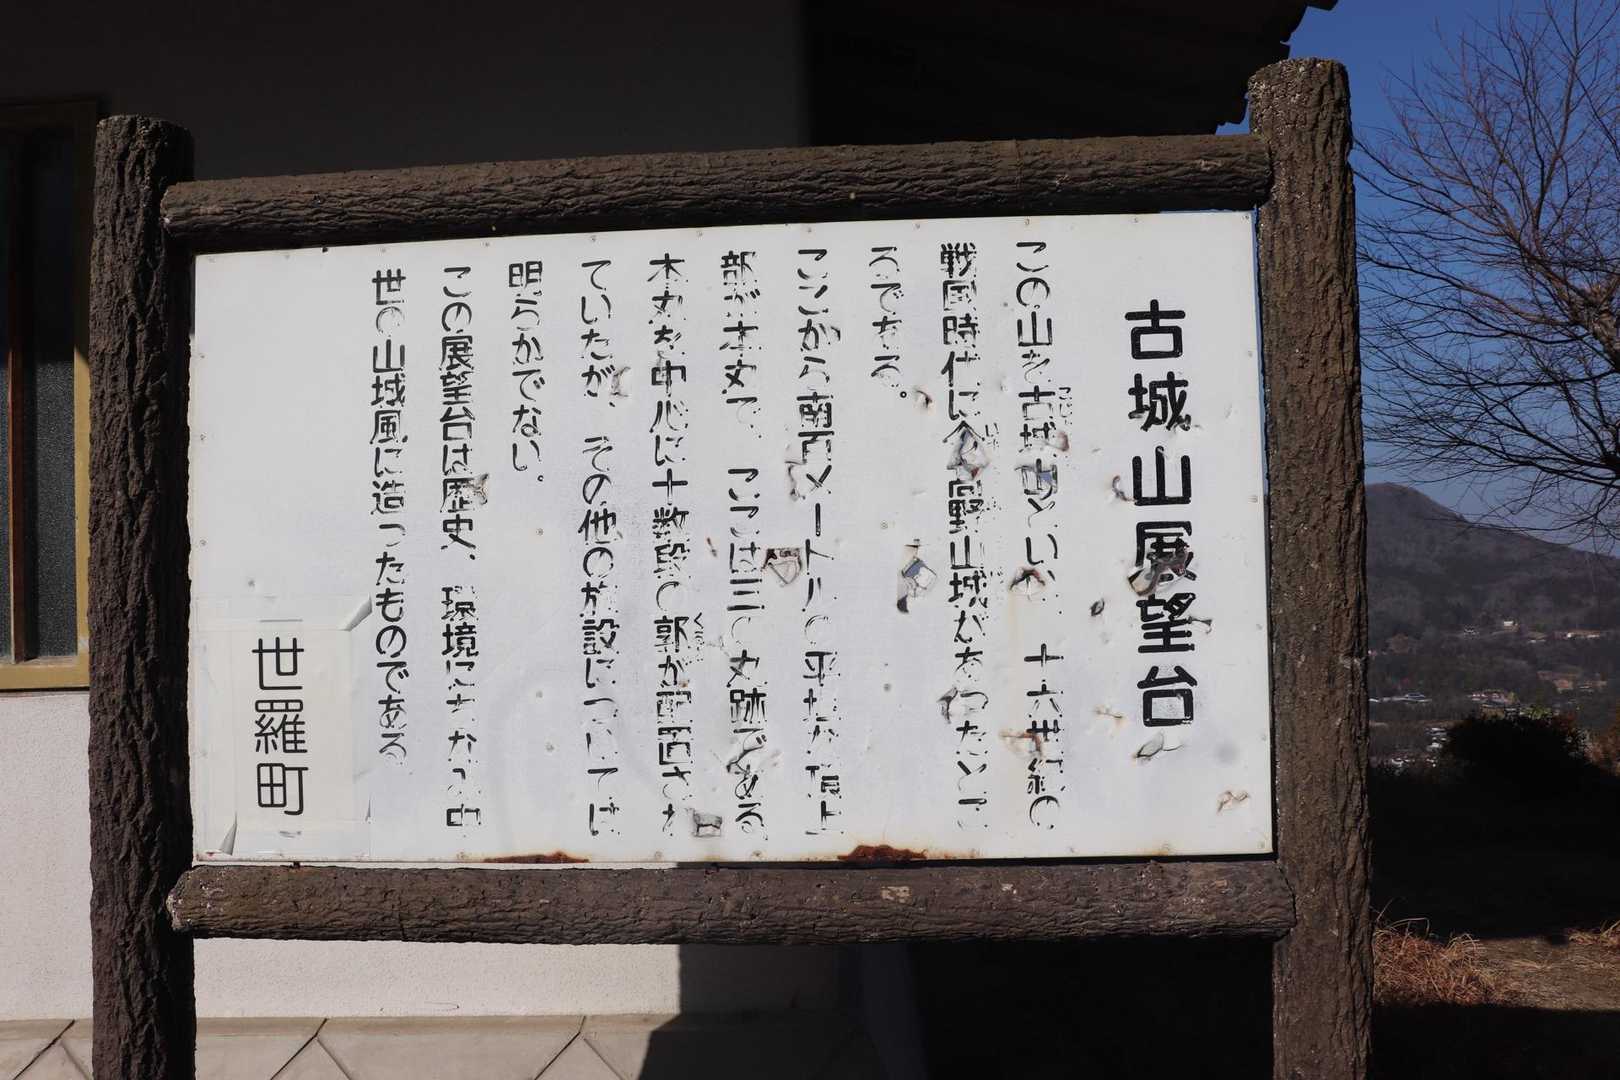 古城山展望台
この山を古城山といい、十六世紀の
戦国時代に今高野山城があったとこ
ろである。
ここから南百メートルの平坦な頂上
部が本丸で、ここは三の丸跡である
本丸を中心に十数段の郭が配置され
ていたが、その他の施設については
明らかでない。
この展望台は歴史、環境にちなみ中
世の山城風に造ったものである
世羅町